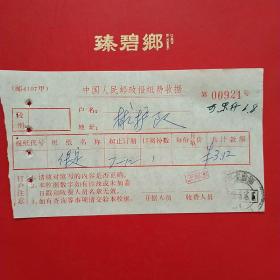 臻碧鄉
(邮4107甲)
中国人民邮政报纸费收据
第 00921 号
户名:
地址:
报纸代号 报纸名称 起止日期 订阅份数 每份月价 共计款额
保定 7-12 1 3.12
订阅 1.请核对填写的内容是否正确。
2.本收据数字如有涂改或未加盖
日戳和收费人员名章无效。
注意 3.如有查询等事项请交验本收据。
开据人员 收费人员